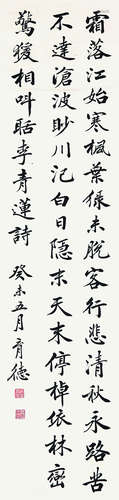 霜落江始寒楓葉緑未脫客行悲清秋永路苦
不達滄波眇川汜白日隱末天末停棹依林巒
驚猨相叫聒李青蓮詩
癸未五月育德